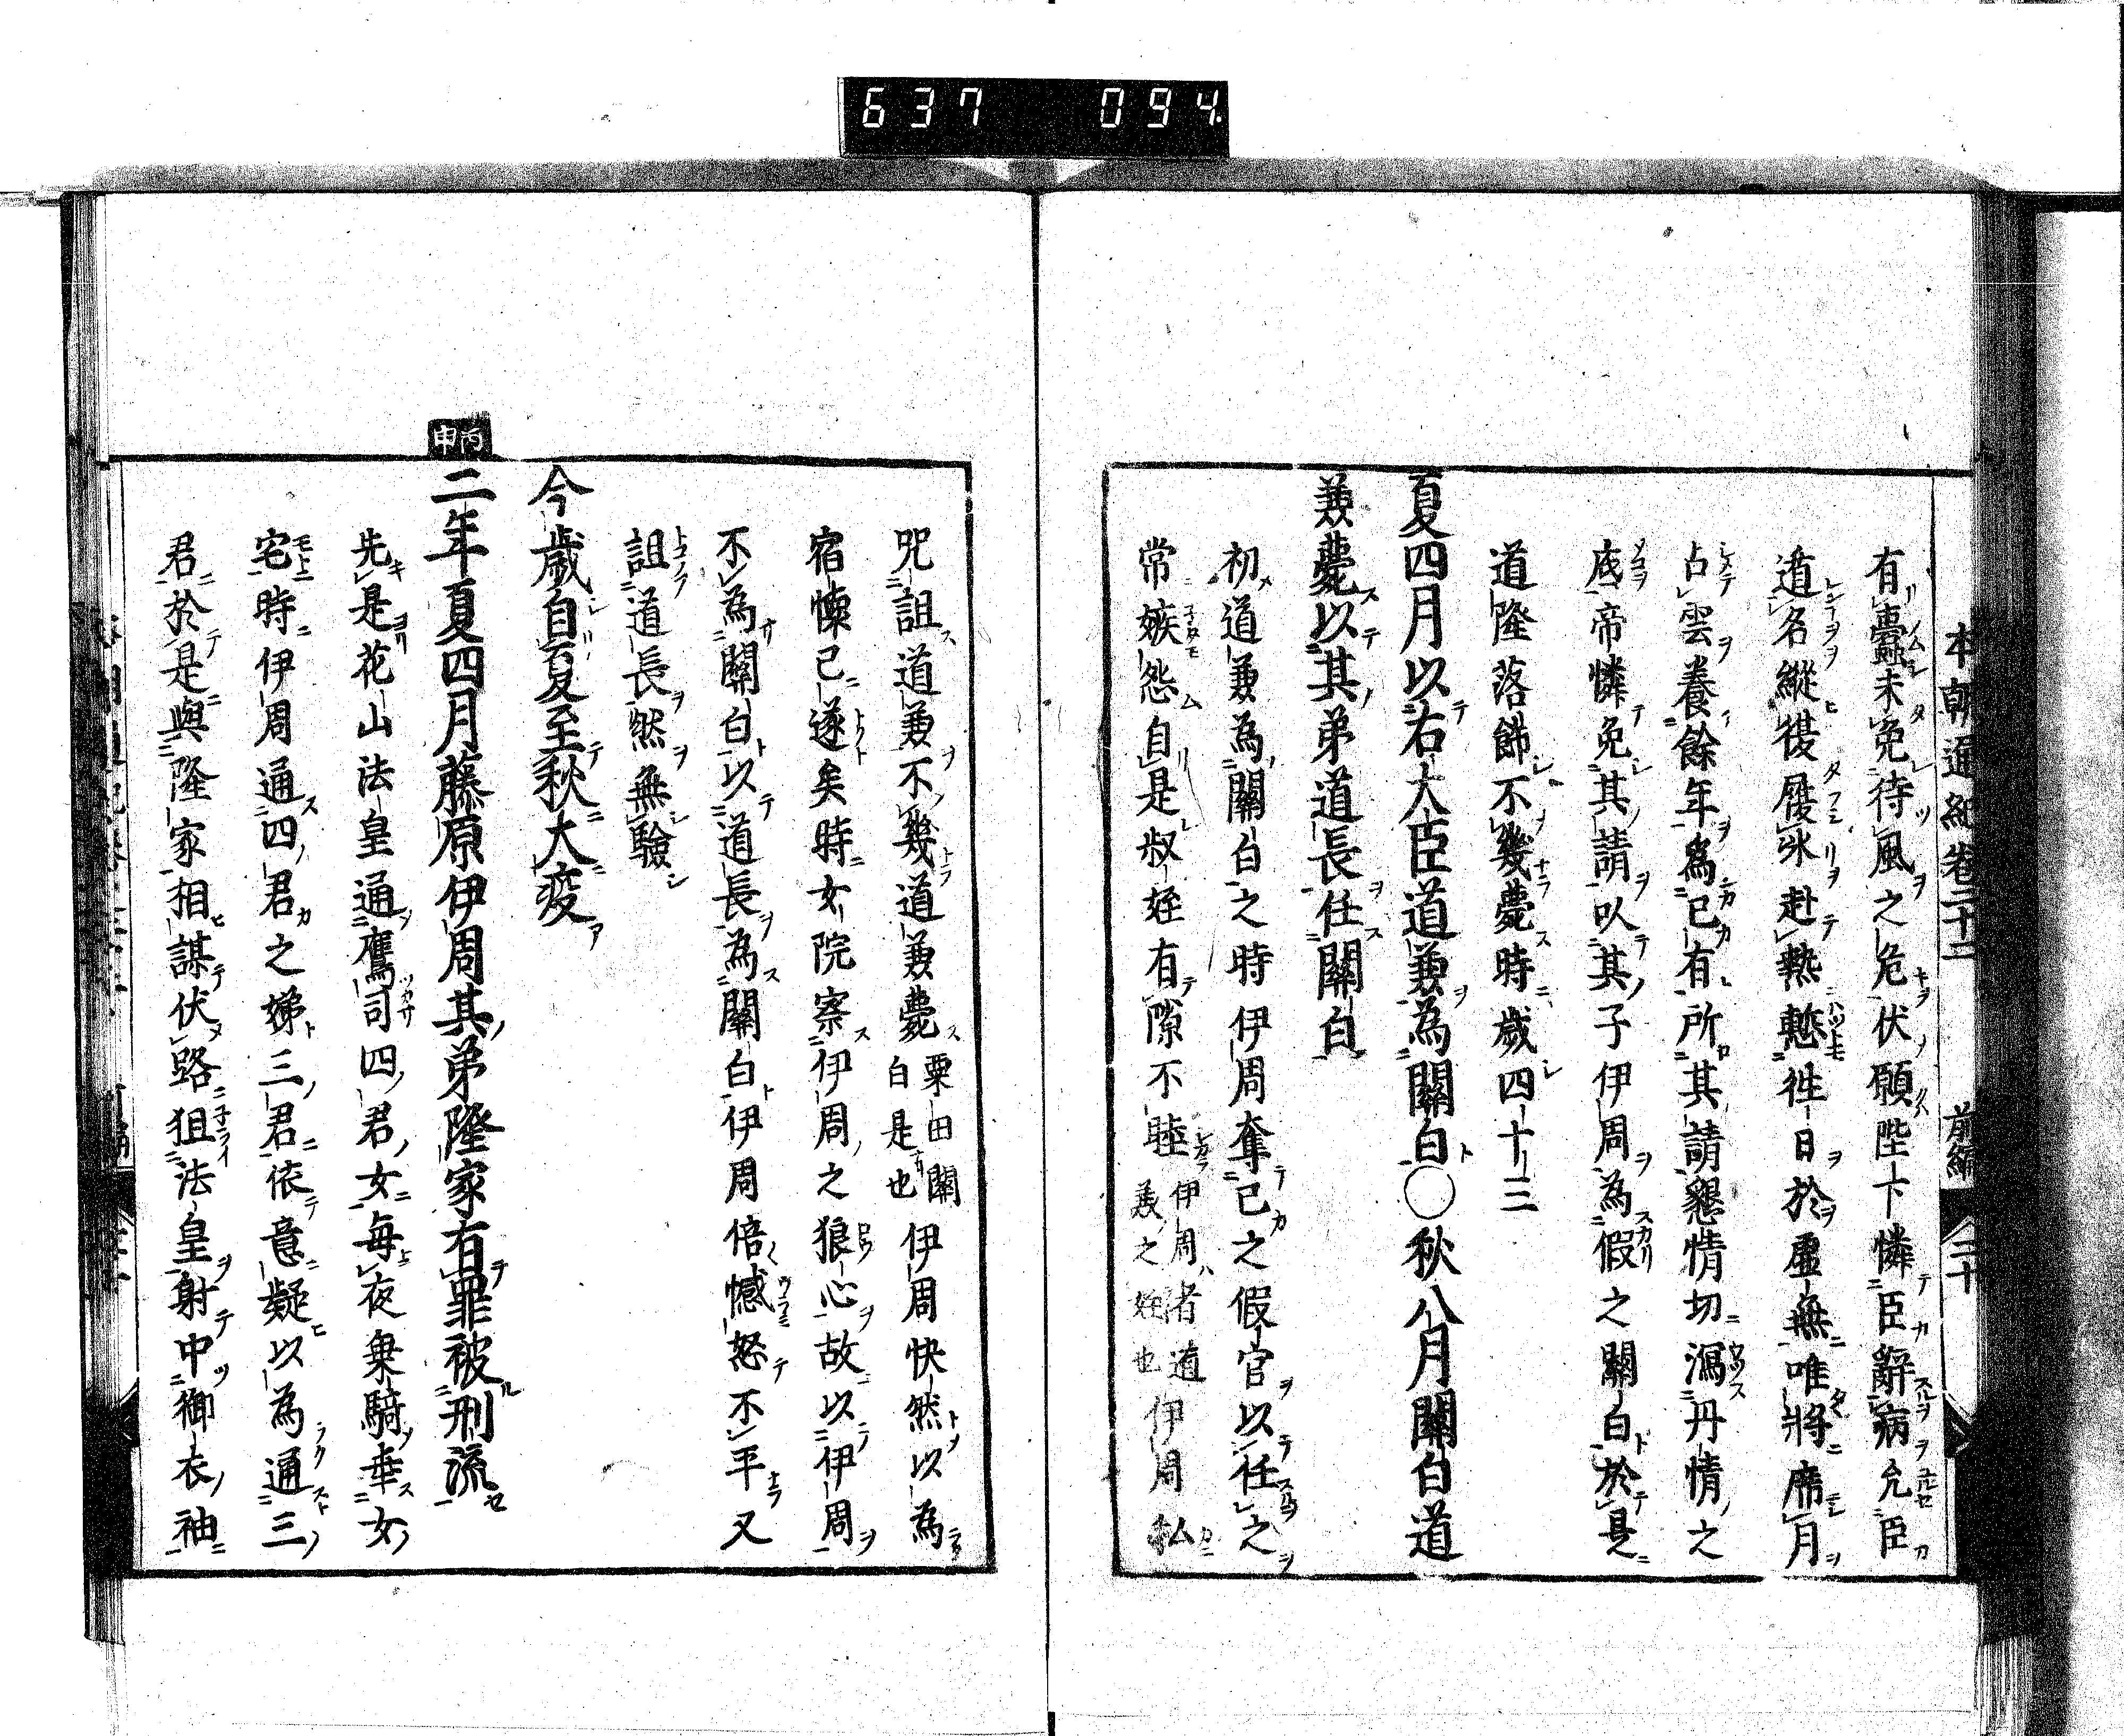 637 094
本朝通紀卷二十二 前編 二十
有蠹未免待風之危伏願陛下憐臣辭病允臣
遁名縱復履氷赴熱慙徃日於虛無唯將席月
占雲養餘年爲已有所其請懇情切瀉丹情之
底帝憐免其請以其子伊周為假之關白於是
道隆落飾不幾薨時歲四十三
夏四月以右大臣道兼為關白〇秋八月關白道
兼薨以其弟道長任關白
初道兼為關白之時伊周奪己之假官以任之
常嫉怨自是叔姪有隙不睦伊周者道兼之姪也伊周私
咒詛道兼不幾道兼薨粟田關白是也伊周快然以為
宿懷已遂矣時女院察伊周之狼心故以伊周
不為關白以道長為關白伊周倍憾怒不平又
詛道長然無驗
今歲自夏至秋大疫
丙申
二年夏四月藤原伊周其弟隆家有罪被刑流
先是花山法皇通鷹司四君女每夜乘騎幸女
宅時伊周通四君之娣三君依意疑以為通三
君於是與隆家相謀伏路狙法皇射中御衣袖